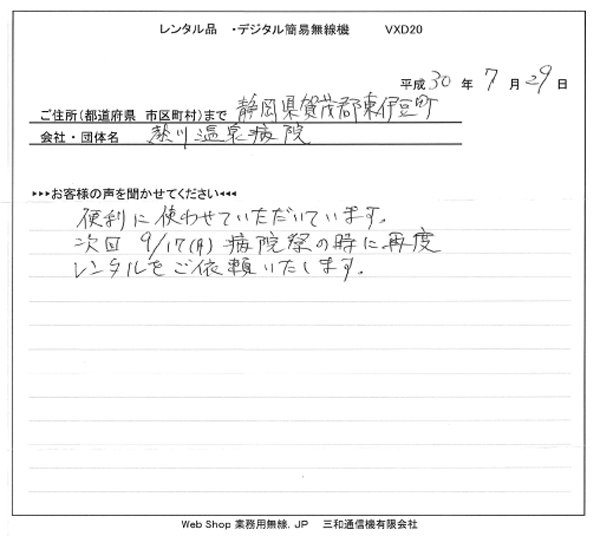 レンタル品 ・デジタル簡易無線機 VXD20
平成30年 7月29日
ご住所(都道府県 市区町村)まで 静岡県賀茂郡東伊豆町
会社・団体名 熱川温泉病院
▸▸▸お客様の声を聞かせてください◂◂◂
便利に使わせていただいています。
次回 9/17(月) 病院祭の時に再度
レンタルをご依頼いたします。
Web Shop 業務用無線．JP 三和通信機有限会社